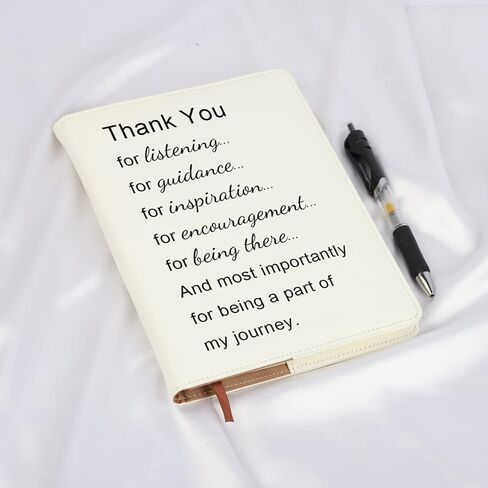 Thank You
for listening...
for guidance...
for inspiration...
for encouragement...
for being there...
And most importantly
for being a part of
my journey.